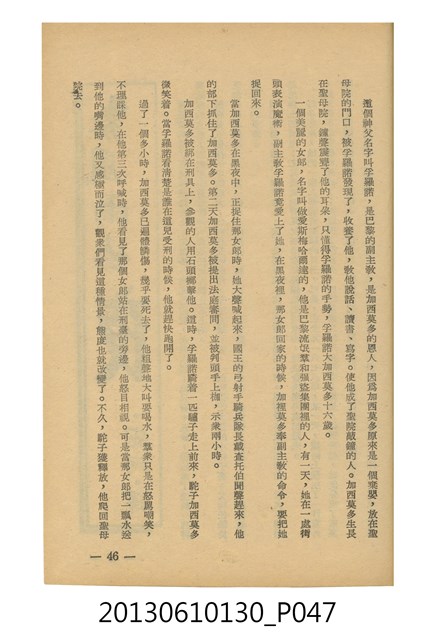 這個神父名字叫孚羅諾,是巴黎的副主教,是加西莫多的恩人,因為加西莫多原來是一個棄嬰,放在聖
母院的門口,被孚羅諾發現了,收養了他,教他說話、讀書、寫字。使他成了聖院敲鐘的人。加西莫多生長
在聖母院,鐘聲震聾了他的耳朵,只懂得孚羅諾的手勢,孚羅諾大加西莫多十六歲。
一個美麗的女郎,名字叫做愛斯梅哈爾達的,他是巴黎流氓羣和強盜集團裡的人,有一天,她在一處街
頭表演魔術,副主教孚羅諾竟愛上了她,在黑夜裡,那女郎回家的時候,加裡莫多奉副主教的命令,要把她
捉回來。
當加西莫多在黑夜中,正捉住那女郎時,她大聲喊起來,國王的弓射手騎兵隊長戴查托伯聞聲趕來,他
的部下抓住了加西莫多。第二天加西莫多被提出法庭審問,並被判頭手上枷,示衆兩小時。
加西莫多被綁在刑具上,參觀的人用石頭擲擊他。這時,孚羅諾騎着一匹騾子走上前來,駝子加西莫多
微笑着。當孚羅諾看清楚是誰在這兒受刑的時候,他就趕快跑開了。
過了一個多小時,加西莫多已遍體鱗傷,幾乎要死去了,他粗聲地大叫要喝水,羣衆只是在怒罵嘲笑,
不理睬他,在他第三次呼喊時,他看見了那個女郎站在刑臺的旁邊,他怒目相視。可是當那女郎把一瓢水送
到他的嘴邊時,他又感極而泣了,觀衆們看見這種情景,態度也就改變了。不久,駝子獲釋放,他爬回聖母
院去。
— 46 —
20130610130_P047